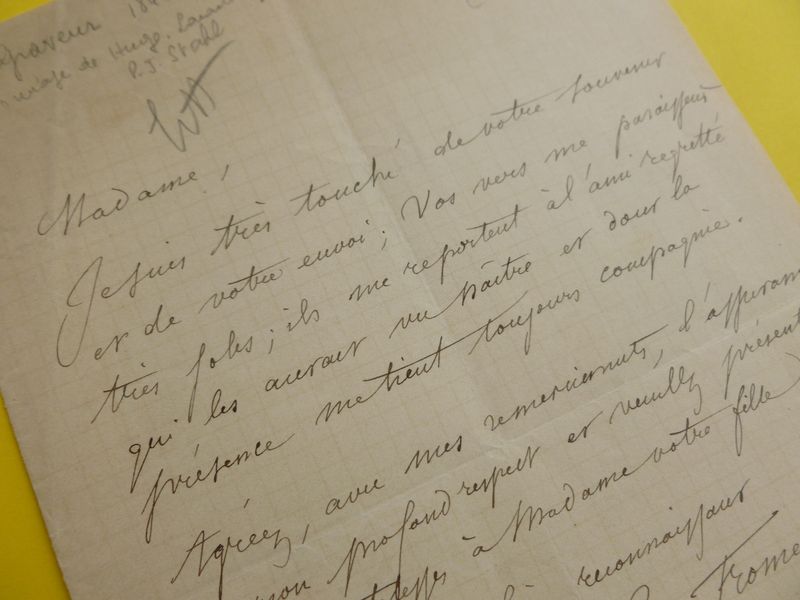 graveur 18
de Hugo.
P. J. Stahl
Madame,
Je suis très touché de votre souvenir
et de votre envoi; Vos vers me paraissent
très jolis; ils me reportent à l'ami regretté
qui les aurait vu naître et dont la
présence me tient toujours compagnie.
Agréez, avec mes remerciements, l'assuran
mon profond respect et veuillez présent
à Madame votre fille
reconnaissant
Frome